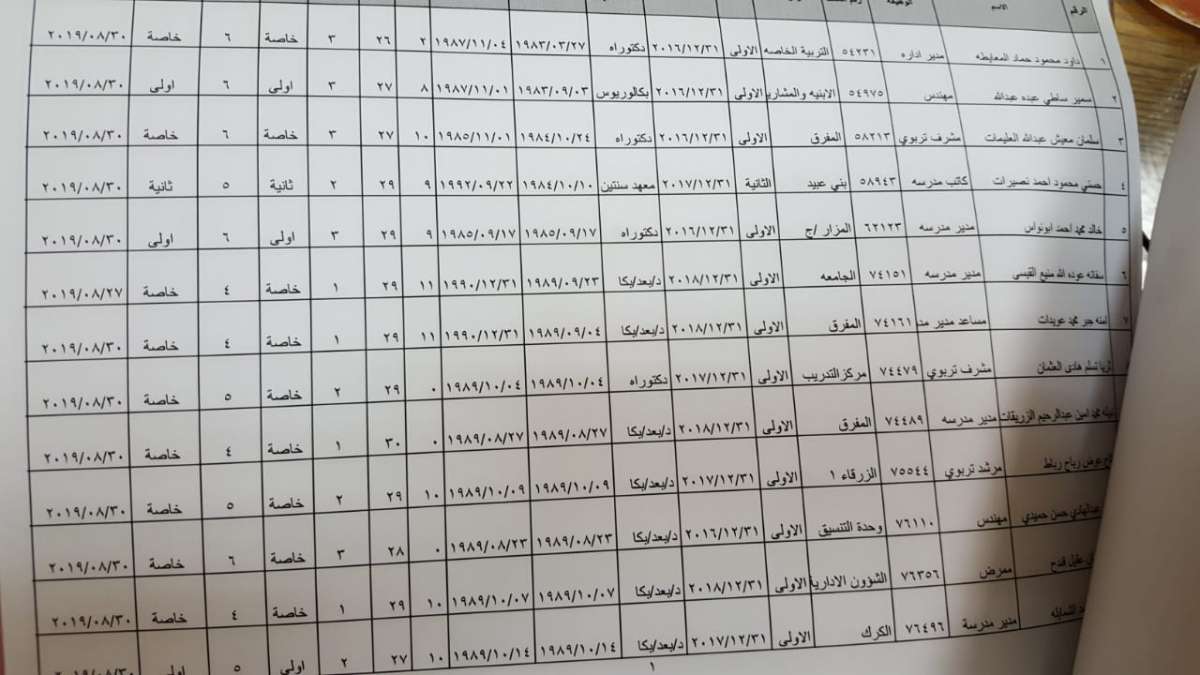 الرقم الاسم الوظيفة
١ داود محمود حماد المعايطه مدير اداره ٥٤٢٣١ التربية الخاصه الاولى ٢٠١٦/١٢/٣١ دكتوراه ١٩٨٣/٠٣/٢٧ ١٩٨٧/١١/٠٤ ٢ ٢٦ ٣ خاصة ٦ خاصة ٢٠١٩/٠٨/٣٠
٢ سمير ساطي عبده عبدالله مهندس ٥٤٩٧٥ الابنيه والمشاري الاولى ٢٠١٦/١٢/٣١ بكالوريوس ١٩٨٣/٠٩/٠٣ ١٩٨٧/١١/٠١ ٨ ٢٧ ٣ اولى ٦ اولى ٢٠١٩/٠٨/٣٠
٣ سلمان معيش عبدالله العليمات مشرف تربوي ٥٨٢١٣ المفرق الاولى ٢٠١٦/١٢/٣١ دكتوراه ١٩٨٤/١٠/٢٤ ١٩٨٥/١١/٠١ ١٠ ٢٧ ٣ خاصة ٦ خاصة ٢٠١٩/٠٨/٣٠
٤ حسني محمود احمد نصيرات كاتب مدرسه ٥٨٩٤٣ بني عبيد الثانية ٢٠١٧/١٢/٣١ معهد سنتين ١٩٨٤/١٠/١٠ ١٩٩٢/٠٩/٢٢ ٩ ٢٩ ٢ ثانية ٥ ثانية ٢٠١٩/٠٨/٣٠
٥ خالد محمد احمد ابونواس مدير مدرسه ٦٢١٢٣ المزار /ج الاولى ٢٠١٦/١٢/٣١ دكتوراه ١٩٨٥/٠٩/١٧ ١٩٨٥/٠٩/١٧ ٩ ٢٩ ٣ اولى ٦ اولى ٢٠١٩/٠٨/٣٠
٦ سفانه عوده الله منيع القيسي مدير مدرسه ٧٤١٥١ الجامعه الاولى ٢٠١٨/١٢/٣١ د/بعد/بكا ١٩٨٩/٠٩/٢٣ ١٩٩٠/١٢/٣١ ١١ ٢٩ ١ خاصة ٤ خاصة ٢٠١٩/٠٨/٢٧
٧ امنه جبر محمد عويدات مساعد مدير مد ٧٤١٦١ المفرق الاولى ٢٠١٨/١٢/٣١ د/بعد/بكا ١٩٨٩/٠٩/٠٤ ١٩٩٠/١٢/٣١ ١١ ٢٩ ١ خاصة ٤ خاصة ٢٠١٩/٠٨/٣٠
ثريا تسلم هادي العثمان مشرف تربوي ٧٤٤٧٩ مركزالتدريب الاولى ٢٠١٧/١٢/٣١ دكتوراه ١٩٨٩/١٠/٠٤ ١٩٨٩/١٠/٠٤ ٠ ٢٩ ٢ خاصة ٥ خاصة ٢٠١٩/٠٨/٣٠
محمد امين عبدالرحيم الزريقات مدير مدرسه ٧٤٤٨٩ المفرق الاولى ٢٠١٨/١٢/٣١ د/بعد/بكا ١٩٨٩/٠٨/٢٧ ١٩٨٩/٠٨/٢٧ ٠ ٣٠ ١ خاصة ٤ خاصة ٢٠١٩/٠٨/٣٠
عوض رباح رباط مرشد تربوي ٧٥٥٤٤ الزرقاء ١ الاولى ٢٠١٧/١٢/٣١ د/بعد/بكا ١٩٨٩/١٠/٠٩ ١٩٨٩/١٠/٠٩ ١٠ ٢٩ ٢ خاصة ٥ خاصة ٢٠١٩/٠٨/٣٠
عبدالهادي حسن حميدي مهندس ٧٦١١٠ وحدة التنسيق الاولى ٢٠١٦/١٢/٣١ د/بعد/بكا ١٩٨٩/٠٨/٢٣ ١٩٨٩/٠٨/٢٣ ٠ ٢٨ ٣ خاصة ٦ خاصة ٢٠١٩/٠٨/٣٠
عقيل قدح ممرض ٧٦٣٥٦ الشؤون الادارية الاولى ٢٠١٨/١٢/٣١ د/بعد/بكا ١٩٨٩/١٠/٠٧ ١٩٨٩/١٠/٠٧ ١٠ ٢٩ ١ خاصة ٤ خاصة ٢٠١٩/٠٨/٣٠
مدير مدرسة ٧٦٤٩٦ الكرك الاولى ٢٠١٧/١٢/٣١ د/بعد/بكا ١٩٨٩/١٠/١٤ ١٩٨٩/١٠/١٤ ١٠ ٢٧ ٢ اولى ٥ اولى ٢٠١٩/٠٨/٣٠
١